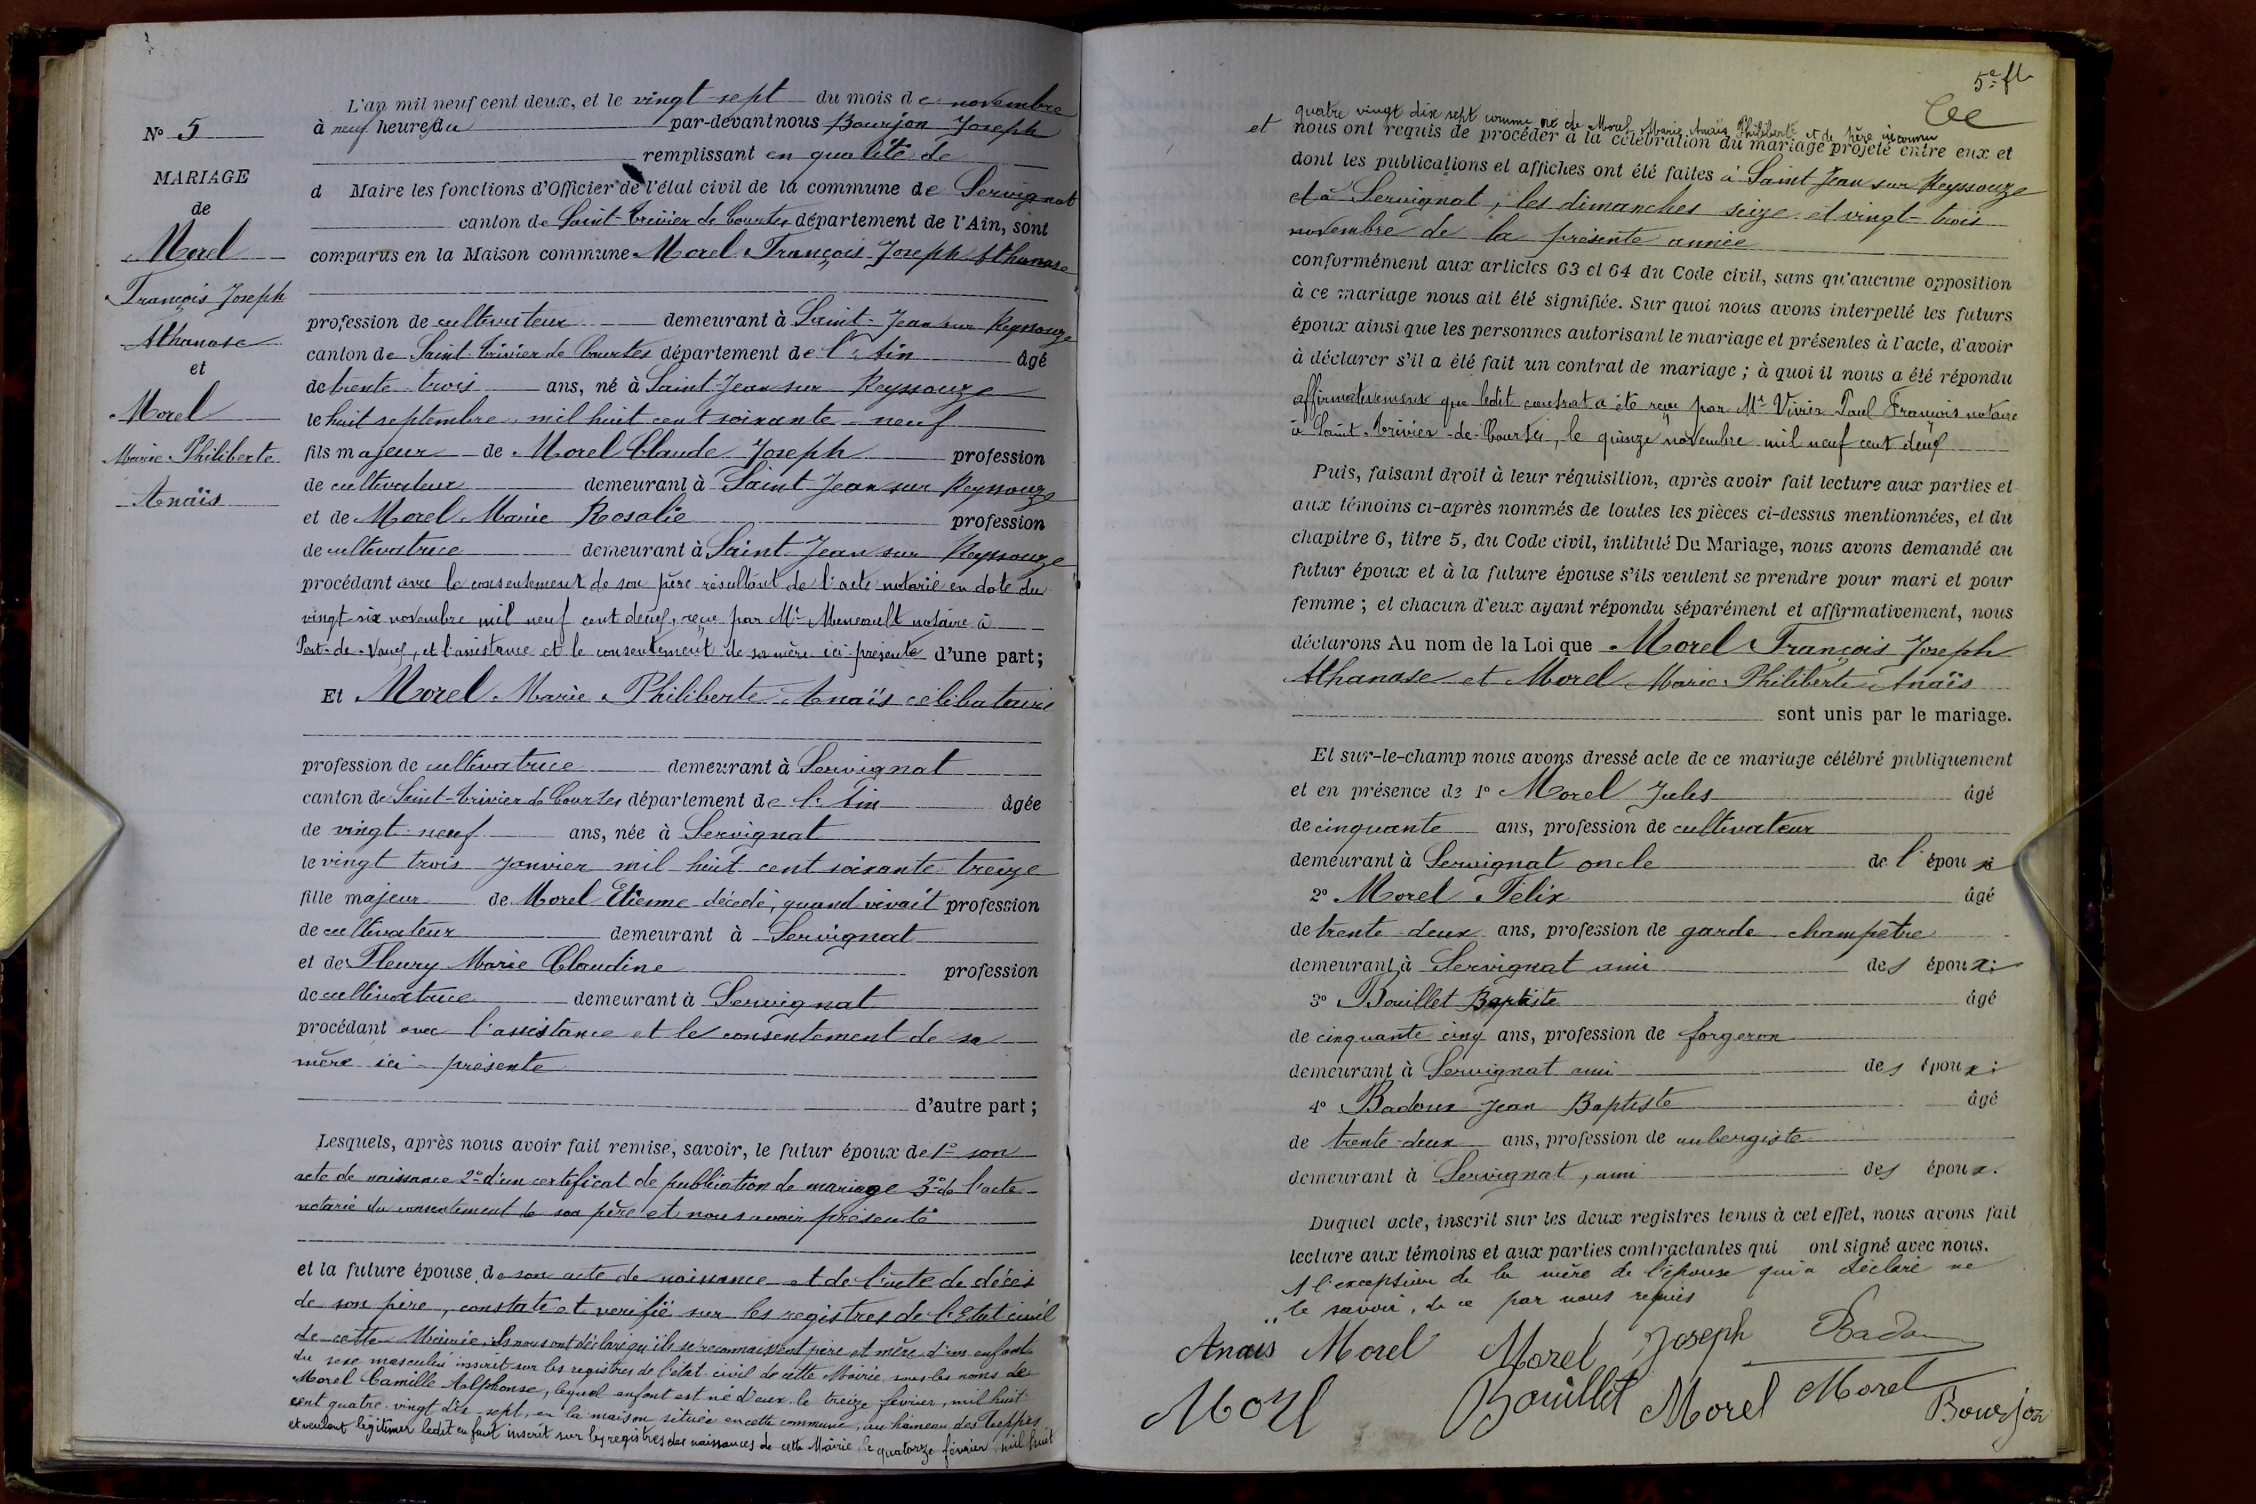 L'an mil neuf cent deux, et le vingt-sept du mois de novembre
N° 5
à neuf heures du par-devant nous Bourjon Joseph
remplissant en qualité de
MARIAGE
de
d Maire les fonctions d'Officier de l'état civil de la commune de Servignat
canton de Saint-Trivier de Courtes département de l'Ain, sont
Morel
comparus en la Maison commune Morel François Joseph Athanase
François Joseph
profession de cultivateur demeurant à Saint-Jean sur Reyssouze
Athanase
canton de Saint-Trivier de Courtes département de l'Ain âgé
et
de trente-trois ans, né à Saint-Jean sur Reyssouze
Morel
le huit septembre mil huit cent soixante-neuf
Marie Philiberte
fils majeur de Morel Claude Joseph profession
de cultivateur demeurant à Saint Jean sur Reyssouze
Anaïs
et de Morel Marie Rosalie profession
de cultivatrice demeurant à Saint Jean sur Reyssouze
procédant avec le consentement de son père résultant de l'acte notarié en date du
vingt-six novembre mil neuf cent deux, reçu par Me notaire à
Pont-de-Vaux, et l'assistance et le consentement de sa mère ici présente d'une part;
Et Morel Marie Philiberte Anaïs célibataire
profession de cultivatrice demeurant à Servignat
canton de Saint-Trivier de Courtes département de l'Ain âgée
de vingt-neuf ans, née à Servignat
le vingt trois Janvier mil huit cent soixante treize
fille majeur de Morel Etienne décédé, quand vivait profession
de cultivateur demeurant à Servignat
et de Fleury Marie Claudine profession
de cultivatrice demeurant à Servignat
procédant avec l'assistance et le consentement de sa
mère ici présente
d'autre part;
Lesquels, après nous avoir fait remise, savoir, le futur époux de 1° son
acte de naissance 2° d'un certificat de publication de mariage 3° de l'acte
notarié du consentement de son père et nous avoir présenté
et la future épouse, de son acte de naissance et de l'acte de décès
de son père, constaté et verifié sur les registres de l'Etat civil
de cette Mairie. Ils nous ont déclaré qu'ils se reconnaissent père et mère d'un enfant
du sexe masculin inscrit sur les registres de l'état civil de cette Mairie, sous les noms de
Morel Camille Aolphonse, lequel enfant est né d'eux le treize février, mil huit
cent quatre-vingt dix-sept, en la maison située en cette commune, au hameau des Teppes
et voulant légitimer ledit enfant inscrit sur les registres des naissances de cette Mairie le quatorze février mil huit
5e ft
quatre vingt dix sept comme né de Morel Marie Anaïs Philiberte et de père inconnu
et nous ont requis de procéder à la célébration du mariage projeté entre eux et
dont les publications et affiches ont été faites à Saint Jean sur Reyssouze
et à Servignat, les dimanches seize et vingt-trois
novembre de la présente année
conformément aux articles 63 et 64 du Code civil, sans qu'aucune opposition
à ce mariage nous ait été signifiée. Sur quoi nous avons interpellé les futurs
époux ainsi que les personnes autorisant le mariage et présentes à l'acte, d'avoir
à déclarer s'il a été fait un contrat de mariage; à quoi il nous a été répondu
affirmativement que ledit contrat a été reçu par Me Paul François notaire
à Saint-Trivier-de-Courtes, le quinze novembre mil neuf cent deux
Puis, faisant droit à leur réquisition, après avoir fait lecture aux parties et
aux témoins ci-après nommés de toutes les pièces ci-dessus mentionnées, et du
chapitre 6, titre 5, du Code civil, intitulé Du Mariage, nous avons demandé au
futur époux et à la future épouse s'ils veulent se prendre pour mari et pour
femme; et chacun d'eux ayant répondu séparément et affirmativement, nous
déclarons Au nom de la Loi que Morel François Joseph
Athanase et Morel Marie Philiberte Anaïs
sont unis par le mariage.
Et sur-le-champ nous avons dressé acte de ce mariage célébré publiquement
et en présence de 1° Morel Jules âgé
de cinquante ans, profession de cultivateur
demeurant à Servignat oncle de l'époux
2° Morel Félix âgé
de trente-deux ans, profession de garde champêtre
demeurant à Servignat ami des époux;
3° Bouillet Baptiste âgé
de cinquante cinq ans, profession de forgeron
demeurant à Servignat ami des époux;
4° Badoux Jean Baptiste âgé
de trente-deux ans, profession de aubergiste
demeurant à Servignat, ami des époux.
Duquel acte, inscrit sur les deux registres tenus à cet effet, nous avons fait
lecture aux témoins et aux parties contractantes qui ont signé avec nous.
A l'exception de la mère de l'épouse qui a déclaré ne
le savoir, de ce par nous requis
Anaïs Morel Morel Joseph Badoux
Morel Bouillet Morel Morel Bourjon